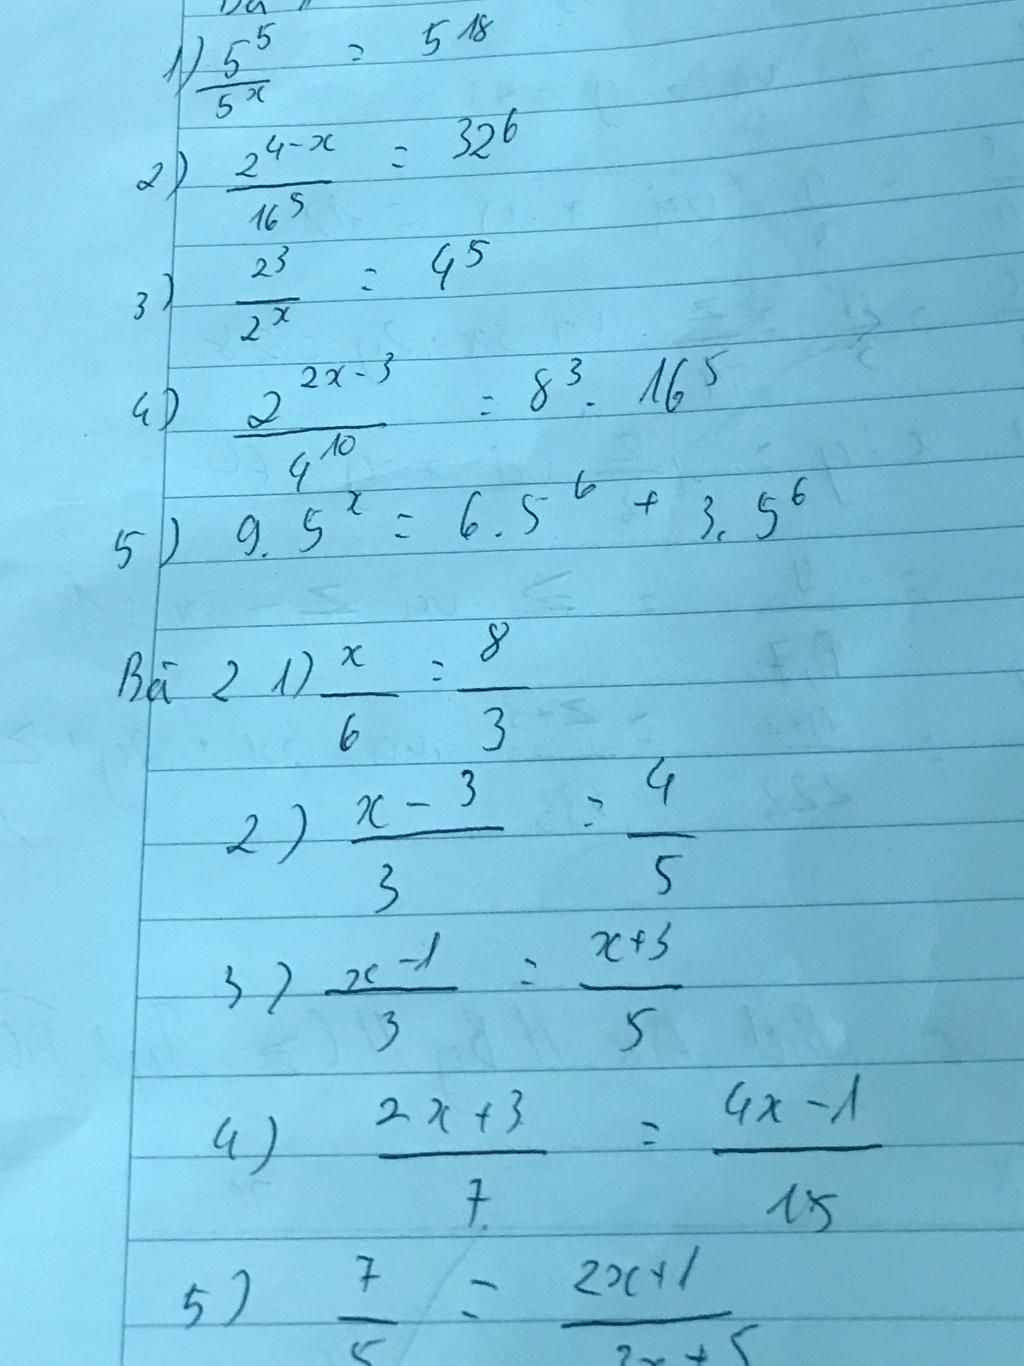 1) 5^5 / 5^x = 5^18
2) 2^(4-x) / 16^5 = 32^6
3) 2^3 / 2^x = 4^5
4) 2^(2x-3) / 4^10 = 8^3 . 16^5
5) 9.5^x = 6.5^6 + 3.5^6
Bà 2 1) x/6 = 8/3
2) (x-3)/3 = 4/5
3) (x-1)/3 = (x+3)/5
4) (2x+3)/7 = (4x-1)/15
5) 7/5 = (2x+1)/